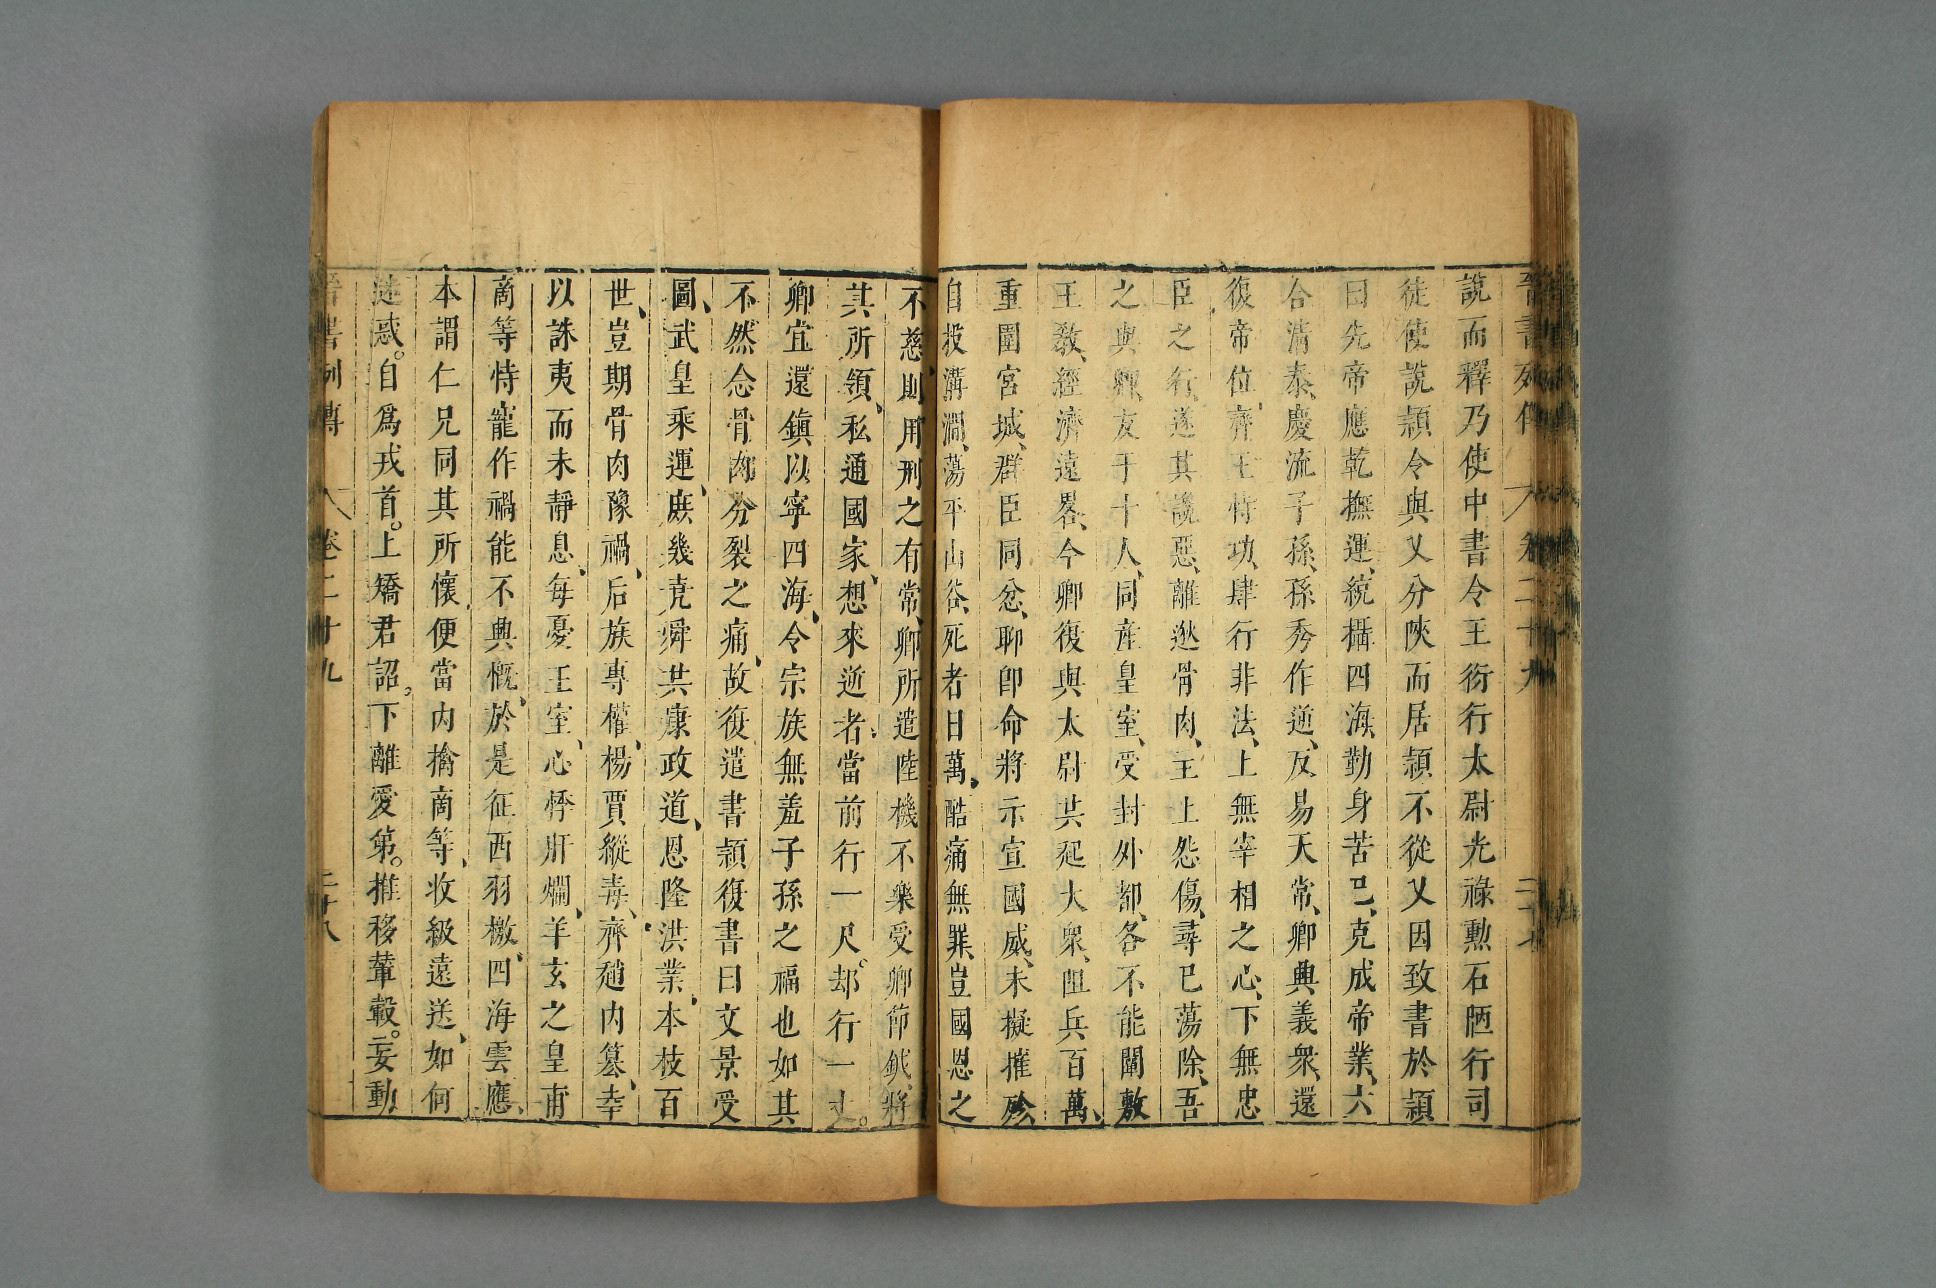 晉書列傳 卷二十九 二十七
說而釋乃使中書令王衍行太尉光祿勲石陋行司
徒使說頴令與乂分陝而居頴不從乂因致書於頴
曰先帝應乾撫運、統攝四海、勤身苦巳、克成帝業、六
合清泰、慶流子孫、孫秀作逆、反易天常、卿興義衆、還
復帝位、齊王恃功、肆行非法、上無宰相之心、下無忠
臣之行、遂其讒惡、離逖骨肉、主上怨傷、尋巳蕩除、吾
之與卿、友于十人、同產皇室、受封外都、各不能闡敷
王敎、經濟遠畧、今卿復與太尉共起大衆、阻兵百萬、
重圍宮城、群臣同忿、聊卽命將示宣國威、未擬摧殄
自投溝澗、蕩平山谷、死者日萬、酷痛無罪、豈國恩之
不慈、則用刑之有常、卿所遣陸機不樂受卿節鉞、將
其所領、私通國家、想來逆者、當前行一尺。却行一丈。
卿宜還鎮以寧四海、令宗族無羞子孫之福也如其
不然念骨肉分裂之痛、故復遣書頴復書曰文景受
圖、武皇乘運、庶幾尭舜共康政道、恩隆洪業、本枝百
世、豈期骨肉豫禍、后族專權、楊賈縱毒、齊趙内簒、幸
以誅夷而未靜息、每憂王室、心悸肝爛、羊玄之皇甫
商等恃寵作禍能不興慨、於是征西羽檄、四海雲應、
本謂仁兄同其所懷、便當内擒商等、收級遠送、如何
迷惑。自爲戎首。上矯君詔。下離愛第。推移輦轂。妄動
晉書列傳 卷二十九 二十八